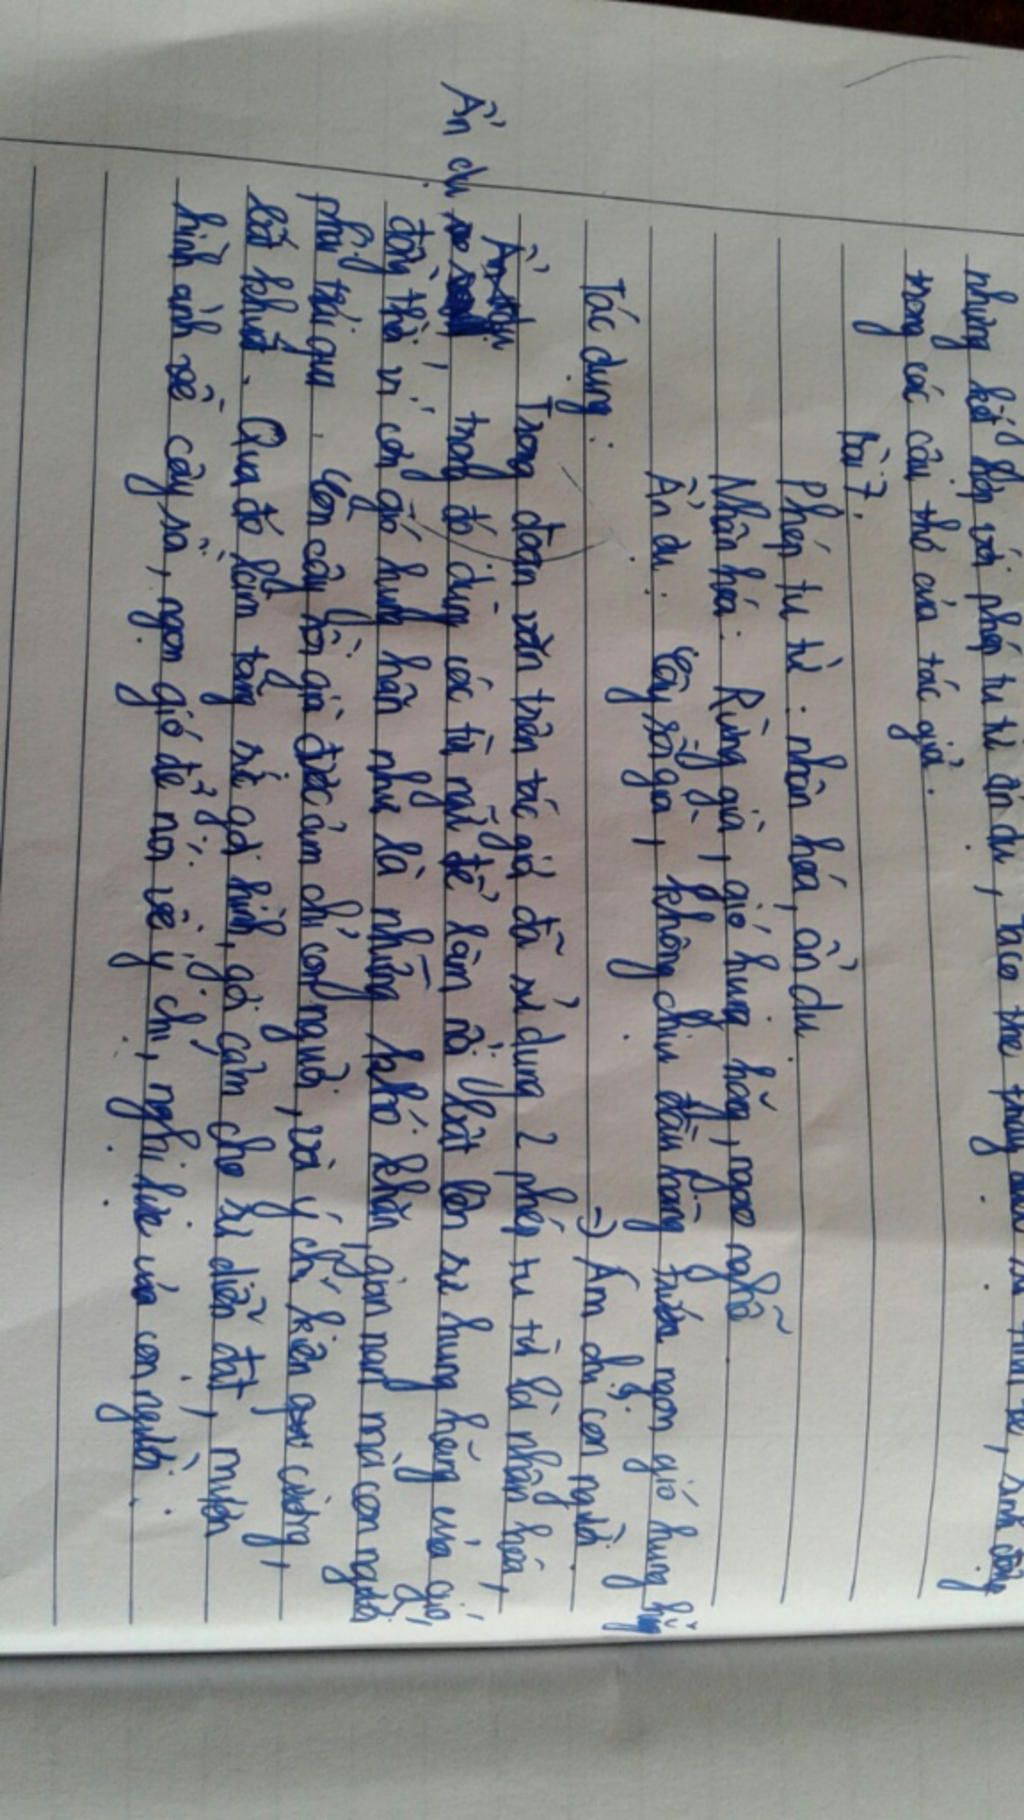 những kết hợp với phép tu từ ẩn dụ, sinh động
trong các câu thơ của tác giả.
Bài 7.
Phép tu từ: nhân hoá, ẩn dụ.
Nhân hoá: Rừng già, gió hung hăng, ngạo nghễ
Ẩn dụ: Cây sồi già, không chịu đầu hàng trước ngọn gió hung hăng
Tác dụng: => Ám chỉ con người.
Trong đoạn văn trên tác giả đã sử dụng 2 phép tu từ là nhân hoá,
Ẩn dụ, trong đó dùng các từ ngữ để làm nổi bật lên sự hung hăng của gió,
đồng thời ví cơn gió hung hãn như là những khó khăn, gian nan mà con người
phải trải qua. Còn cây sồi già được ám chỉ con người, và ý chí kiên cường,
bất khuất. Qua đó làm tăng sức gợi hình, gợi cảm cho sự diễn đạt, mượn
hình ảnh về cây sồi, ngọn gió để nói về ý chí, nghị lực của con người.